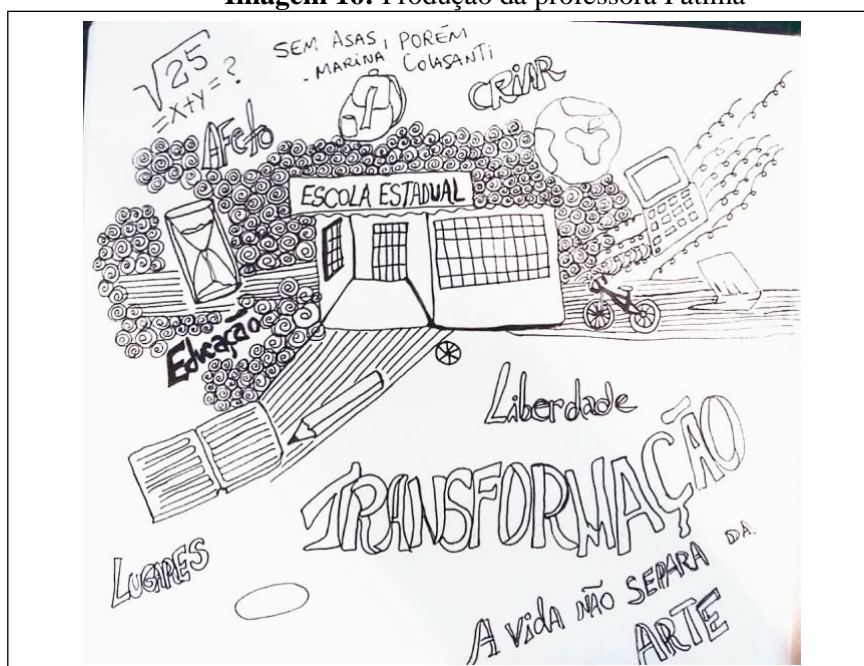 Imagem 16: Produção da professora Fátima
√25
=X+Y=?
SEM ASAS, PORÉM
- MARINA COLASANTI
CRIAR
AFETO
ESCOLA ESTADUAL
Educação
Liberdade
TRANSFORMAÇÃO
LUGARES
A VIDA NÃO SEPARA DA
ARTE